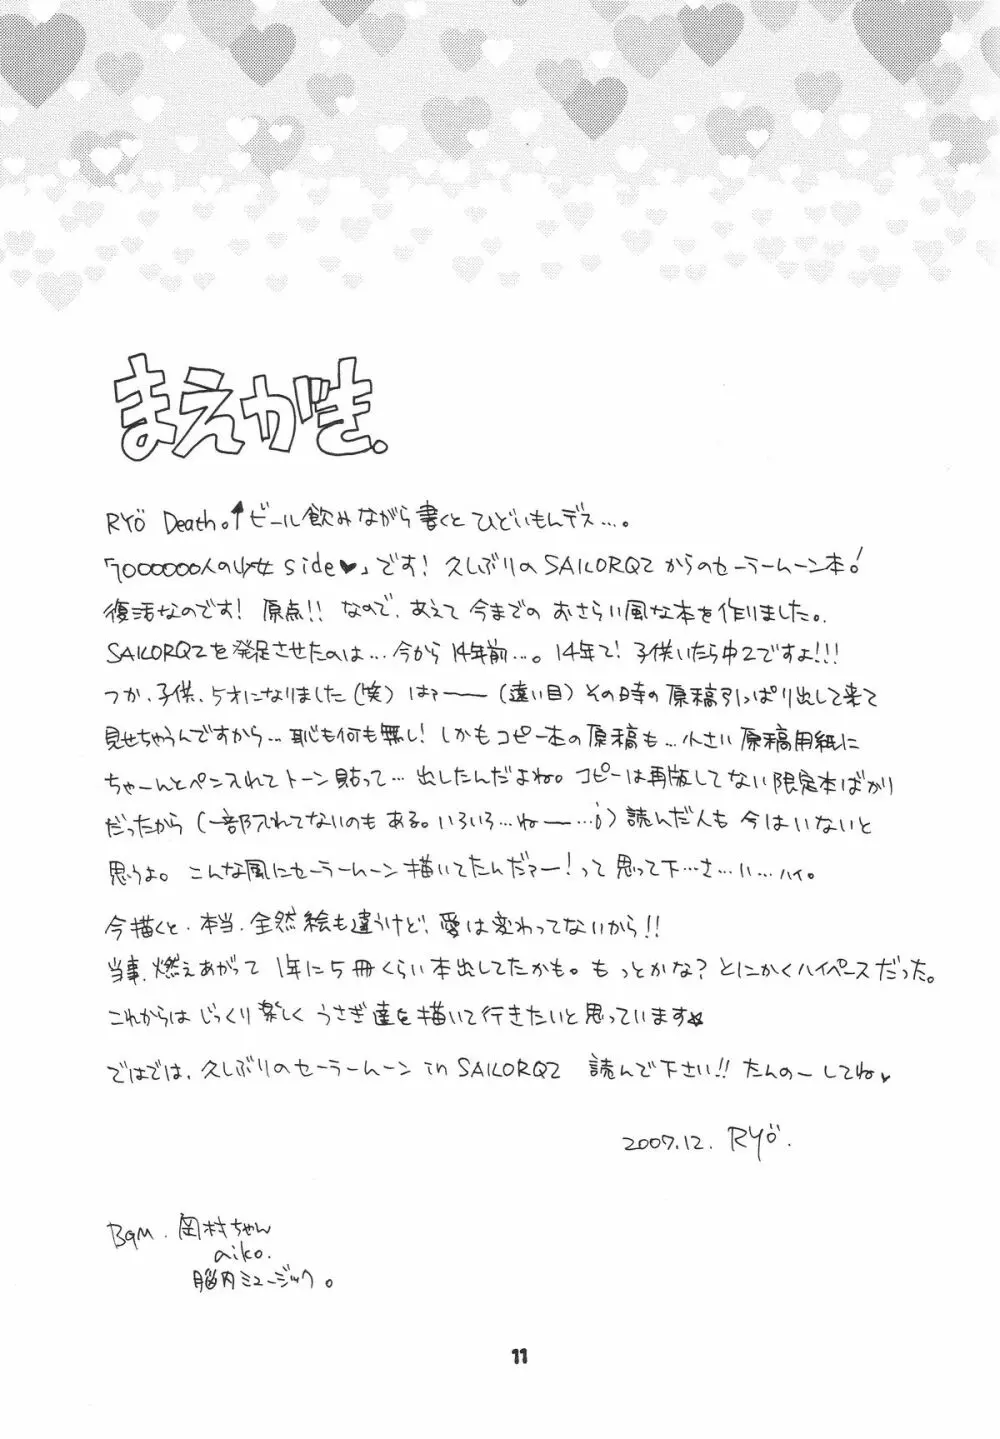 まえがき.
RYÖ Death。↑ビール飲みながら書くとひどいもんデス…。
「7000000人の少女 side♥」です! 久しぶりの SAILORQ2 からのセーラームーン本!
復活なのです! 原点!! なので、あえて 今までの おさらい風な本を作りました。
SAILORQ2を発足させたのは…今から 14年前…。14年て! 子供いたら中2ですよ!!!
つか、子供、5才になりました(笑) はァ——(遠い目) その時の原稿引っぱり出して来て
見せちゃうんですから… 恥も何も無し! しかも コピー本の原稿も… 小さい原稿用紙に
ちゃーんとペン入れて トーン貼って… 出したんだよね。コピーは再版してない限定本ばかり
だったから (一部入れてないのも ある。いろいろ…ね——…) 読んだ人も 今はいないと
思うよ。こんな風にセーラームーン描いてたんだァー! って 思って下…さ…い…ハイ。
今描くと、本当、全然絵も違うけど、愛は変わってないから!!
当事、燃えあがって 1年に5冊くらい本出してたかも。もっとかな? とにかくハイペースだった。
これからは じっくり 楽しく うさぎ達を描いて行きたいと思っています☆
ではでは、久しぶりのセーラームーン in SAILORQ2 読んで下さい!! たんのーしてね♥
2007.12. RYÖ.
BGM. 岡村ちゃん
aiko.
脳内ミュージック。
11